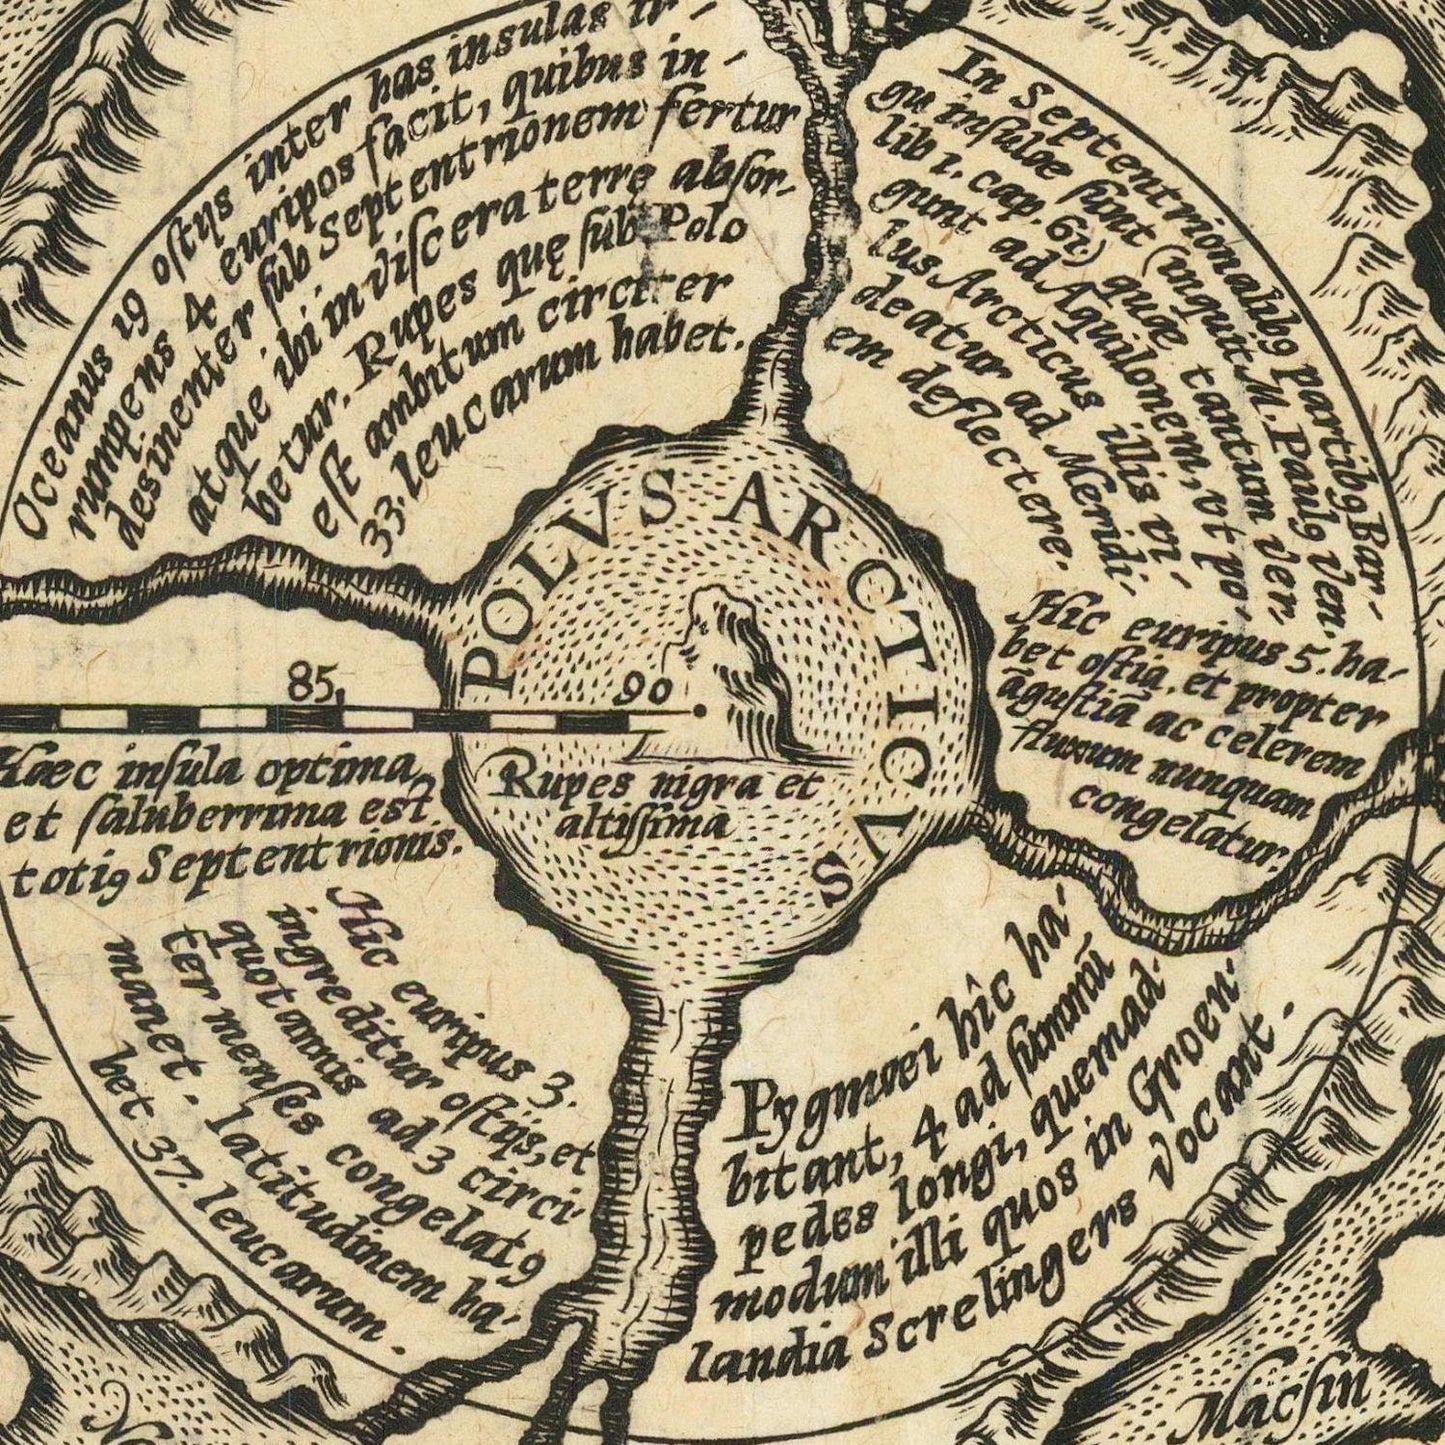 Oceanus 19 ostijs inter has insulas ir-
rumpens 4 euripos facit, quibus in-
desinenter sub Septentrionem fertur
atque ibi in viscera terrę absor-
betur. Rupes quę sub Polo
est ambitum circiter
33. leucarum habet.
In Septentrionalibꝰ partibꝰ Bar-
gu insulæ sunt (inquit M. Paulꝰ Ven.
lib 1. cap. 61) quæ tantum ver-
gunt ad Aquilonem, vt po-
lus Arcticus illis vi-
deatur ad Meridi-
em deflectere.
POLVS ARCTICVS
85,
90
Rupes nigra et
altissima
Hic euripus 5. ha-
bet ostia, et propter
āgustiā ac celerem
fluxum nunquam
congelatur.
Hæc insula optima
et saluberrima est
totiꝰ Septentrionis.
Hic euripus 3.
ingreditur ostijs, et
quotannis ad 3 circi
ter menses congelatꝰ
manet. latitudinem ha-
bet 37. leucarum.
Pygmæi hîc ha-
bitant, 4 ad summū
pedes longi, quemad-
modum illi quos in Groen-
landia Screlingers vocant.
Macsin